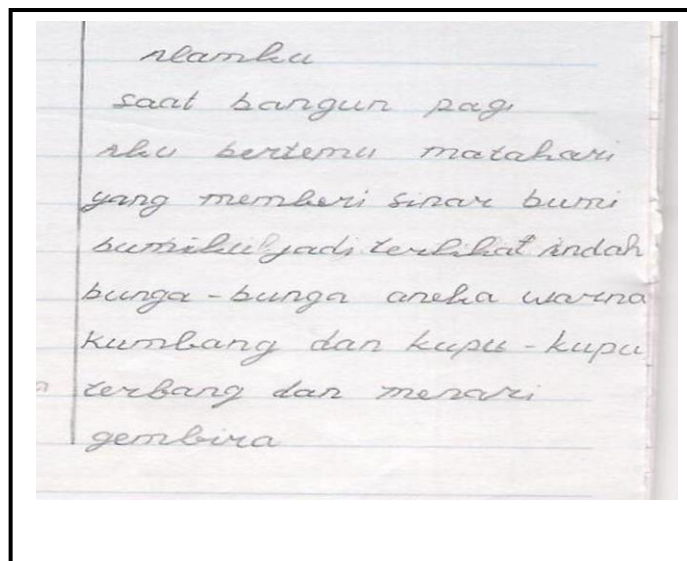 Alamku
saat bangun pagi
Aku bertemu matahari
yang memberi sinar bumi
bumiku jadi terlihat indah
bunga-bunga aneka warna
Kumbang dan kupu-kupu
terbang dan menari
gembira